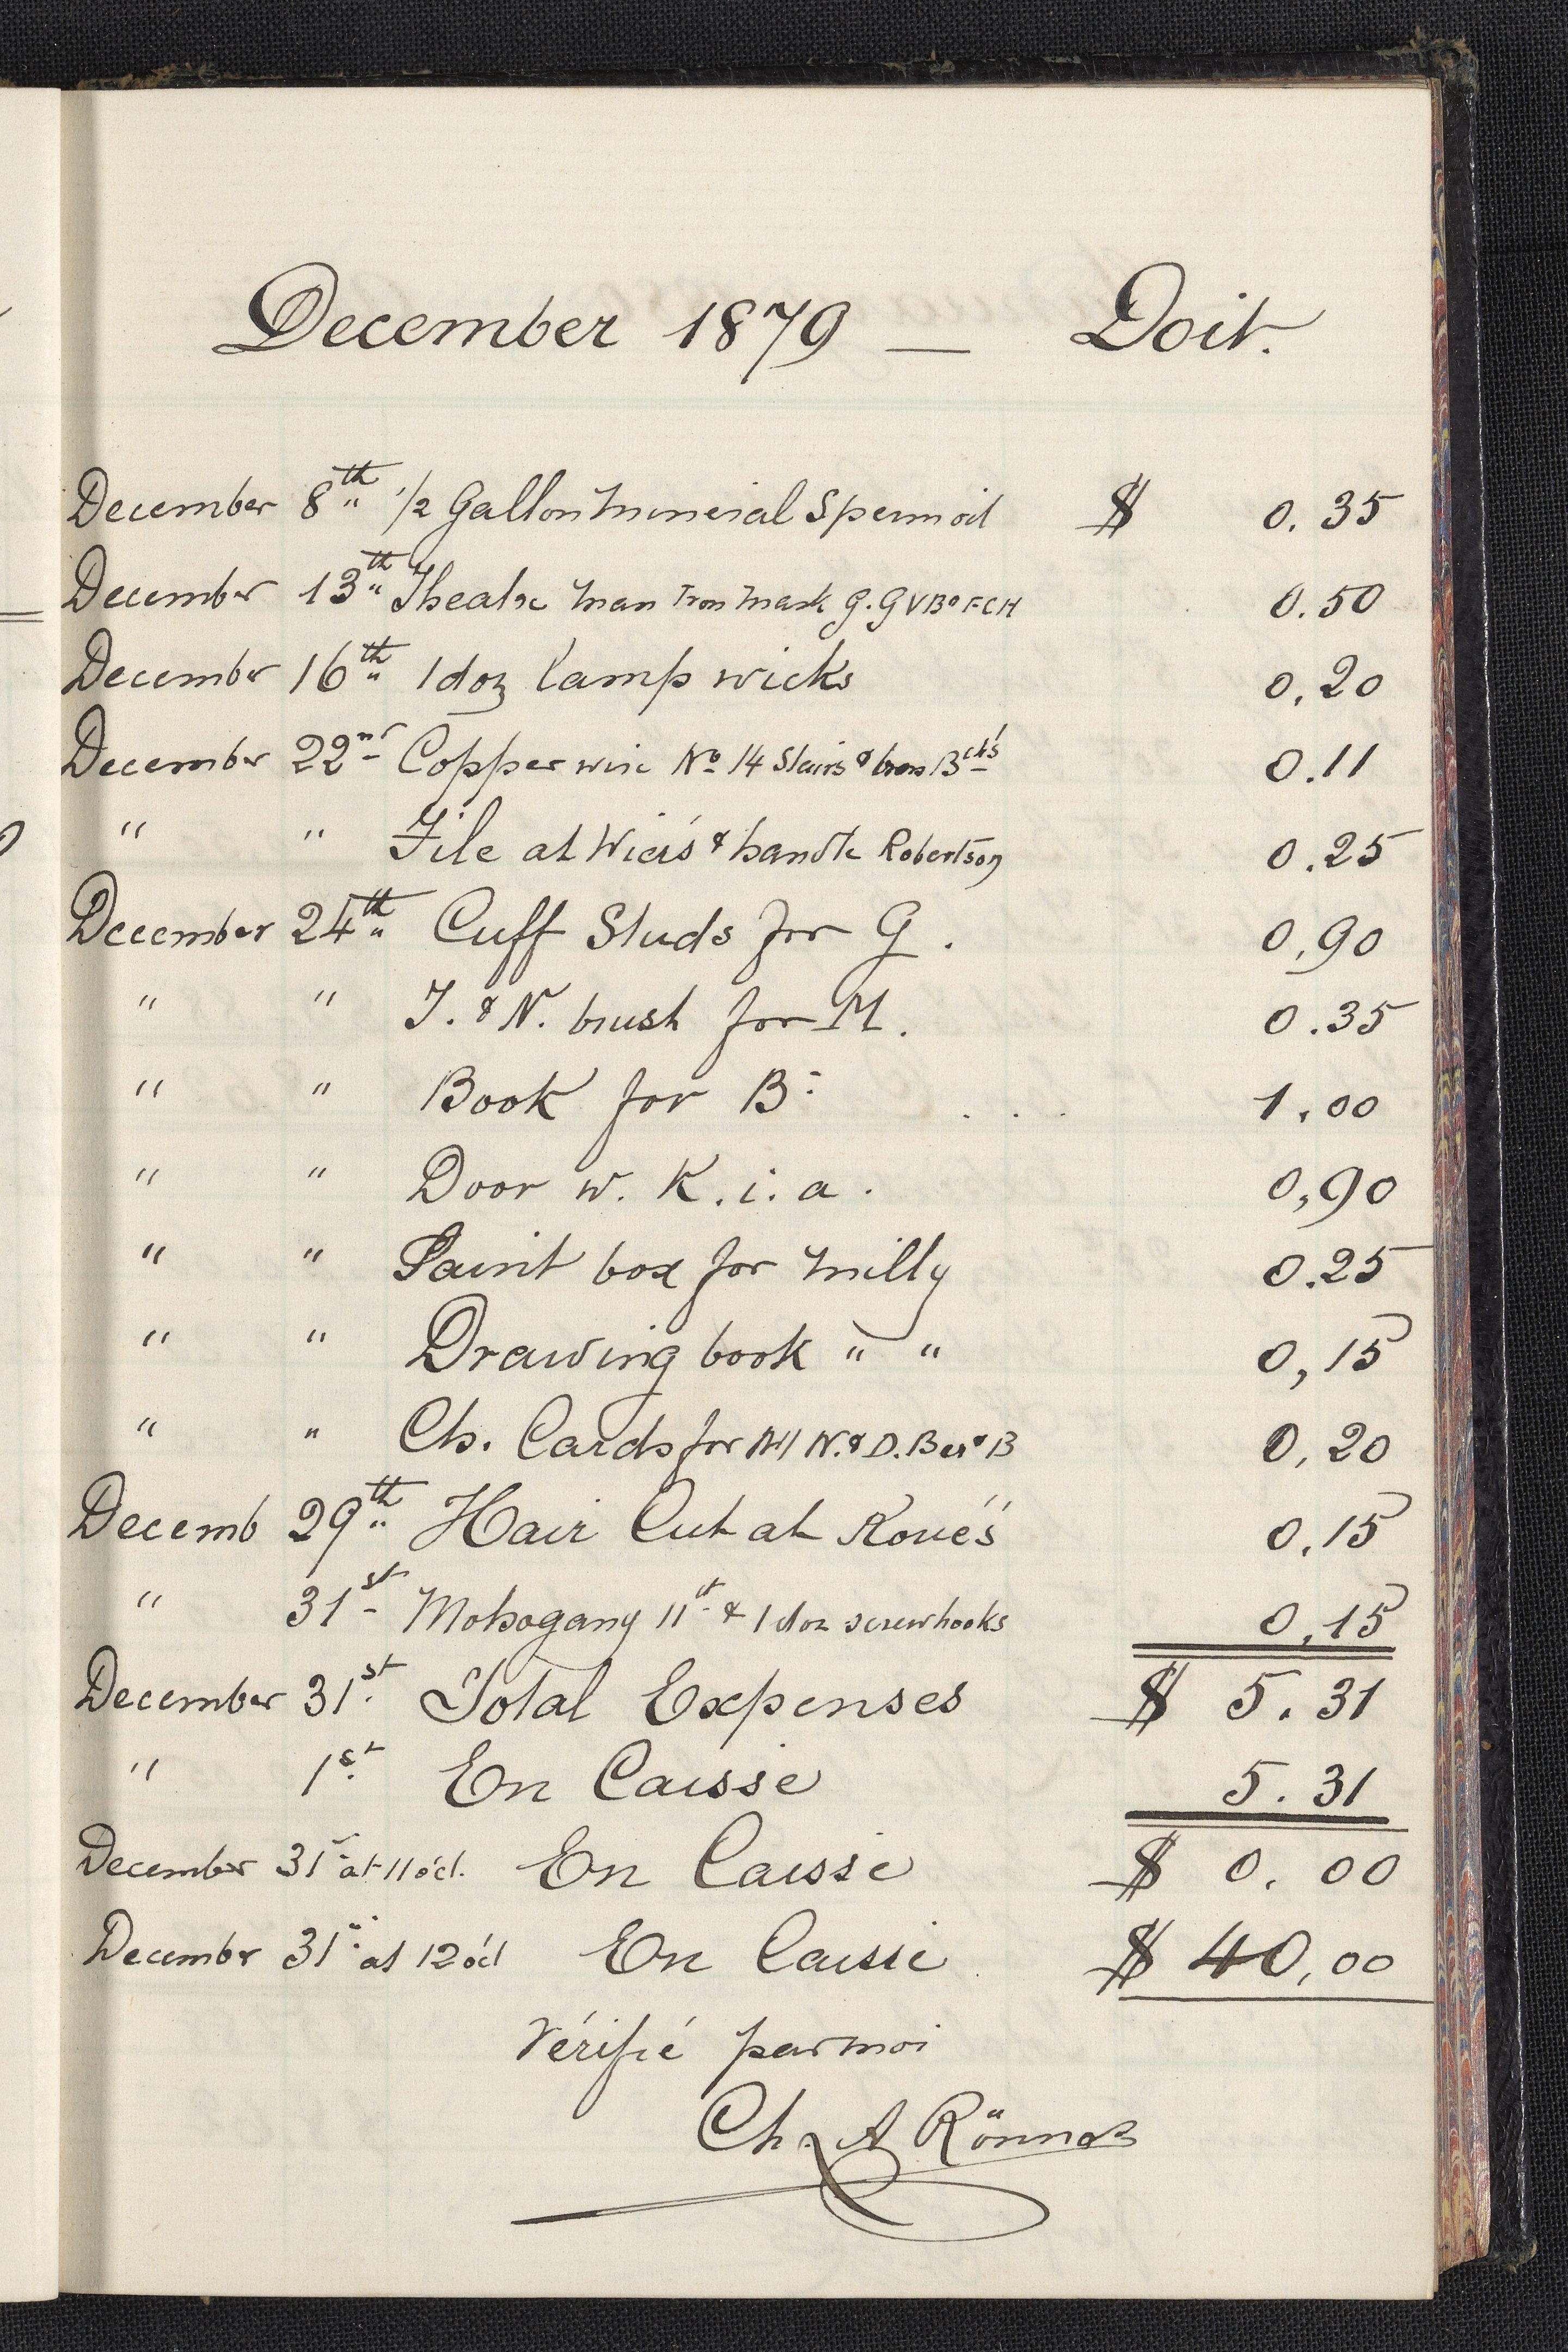 December 1879 — Doit.
December 8th 1/2 Gallon Mineral Sperm oil $ 0.35
December 13th Theatre Man Iron Mask G. G V Bo FCH 0.50
December 16th 1 doz lamp wicks 0,20
December 22nd Copper wire No 14 Stairs & brass 0.11
" " File at Wier's & handle Robertson 0.25
December 24th Cuff Studs for G. 0,90
" " T. & N. brush for M. 0.35
" " Book for B: . . . 1,00
" " Door w. K. i. a. 0,90
" " Paint box for Milly 0.25
" " Drawing book " " 0,15
" " Ch. Cards for N. & D. B & B 0,20
Decemb 29th Hair Cut at Roué's 0,15
" 31st Mohogany 11 & 1 doz screwhooks 0,15
December 31st Total Expenses $ 5.31
" 1st En Caisse 5.31
December 31 at 11 o'cl. En Caisse $ 0.00
December 31 at 12 o'cl En Caisse $ 40,00
Vérifié par moi
Ch. A Rönne